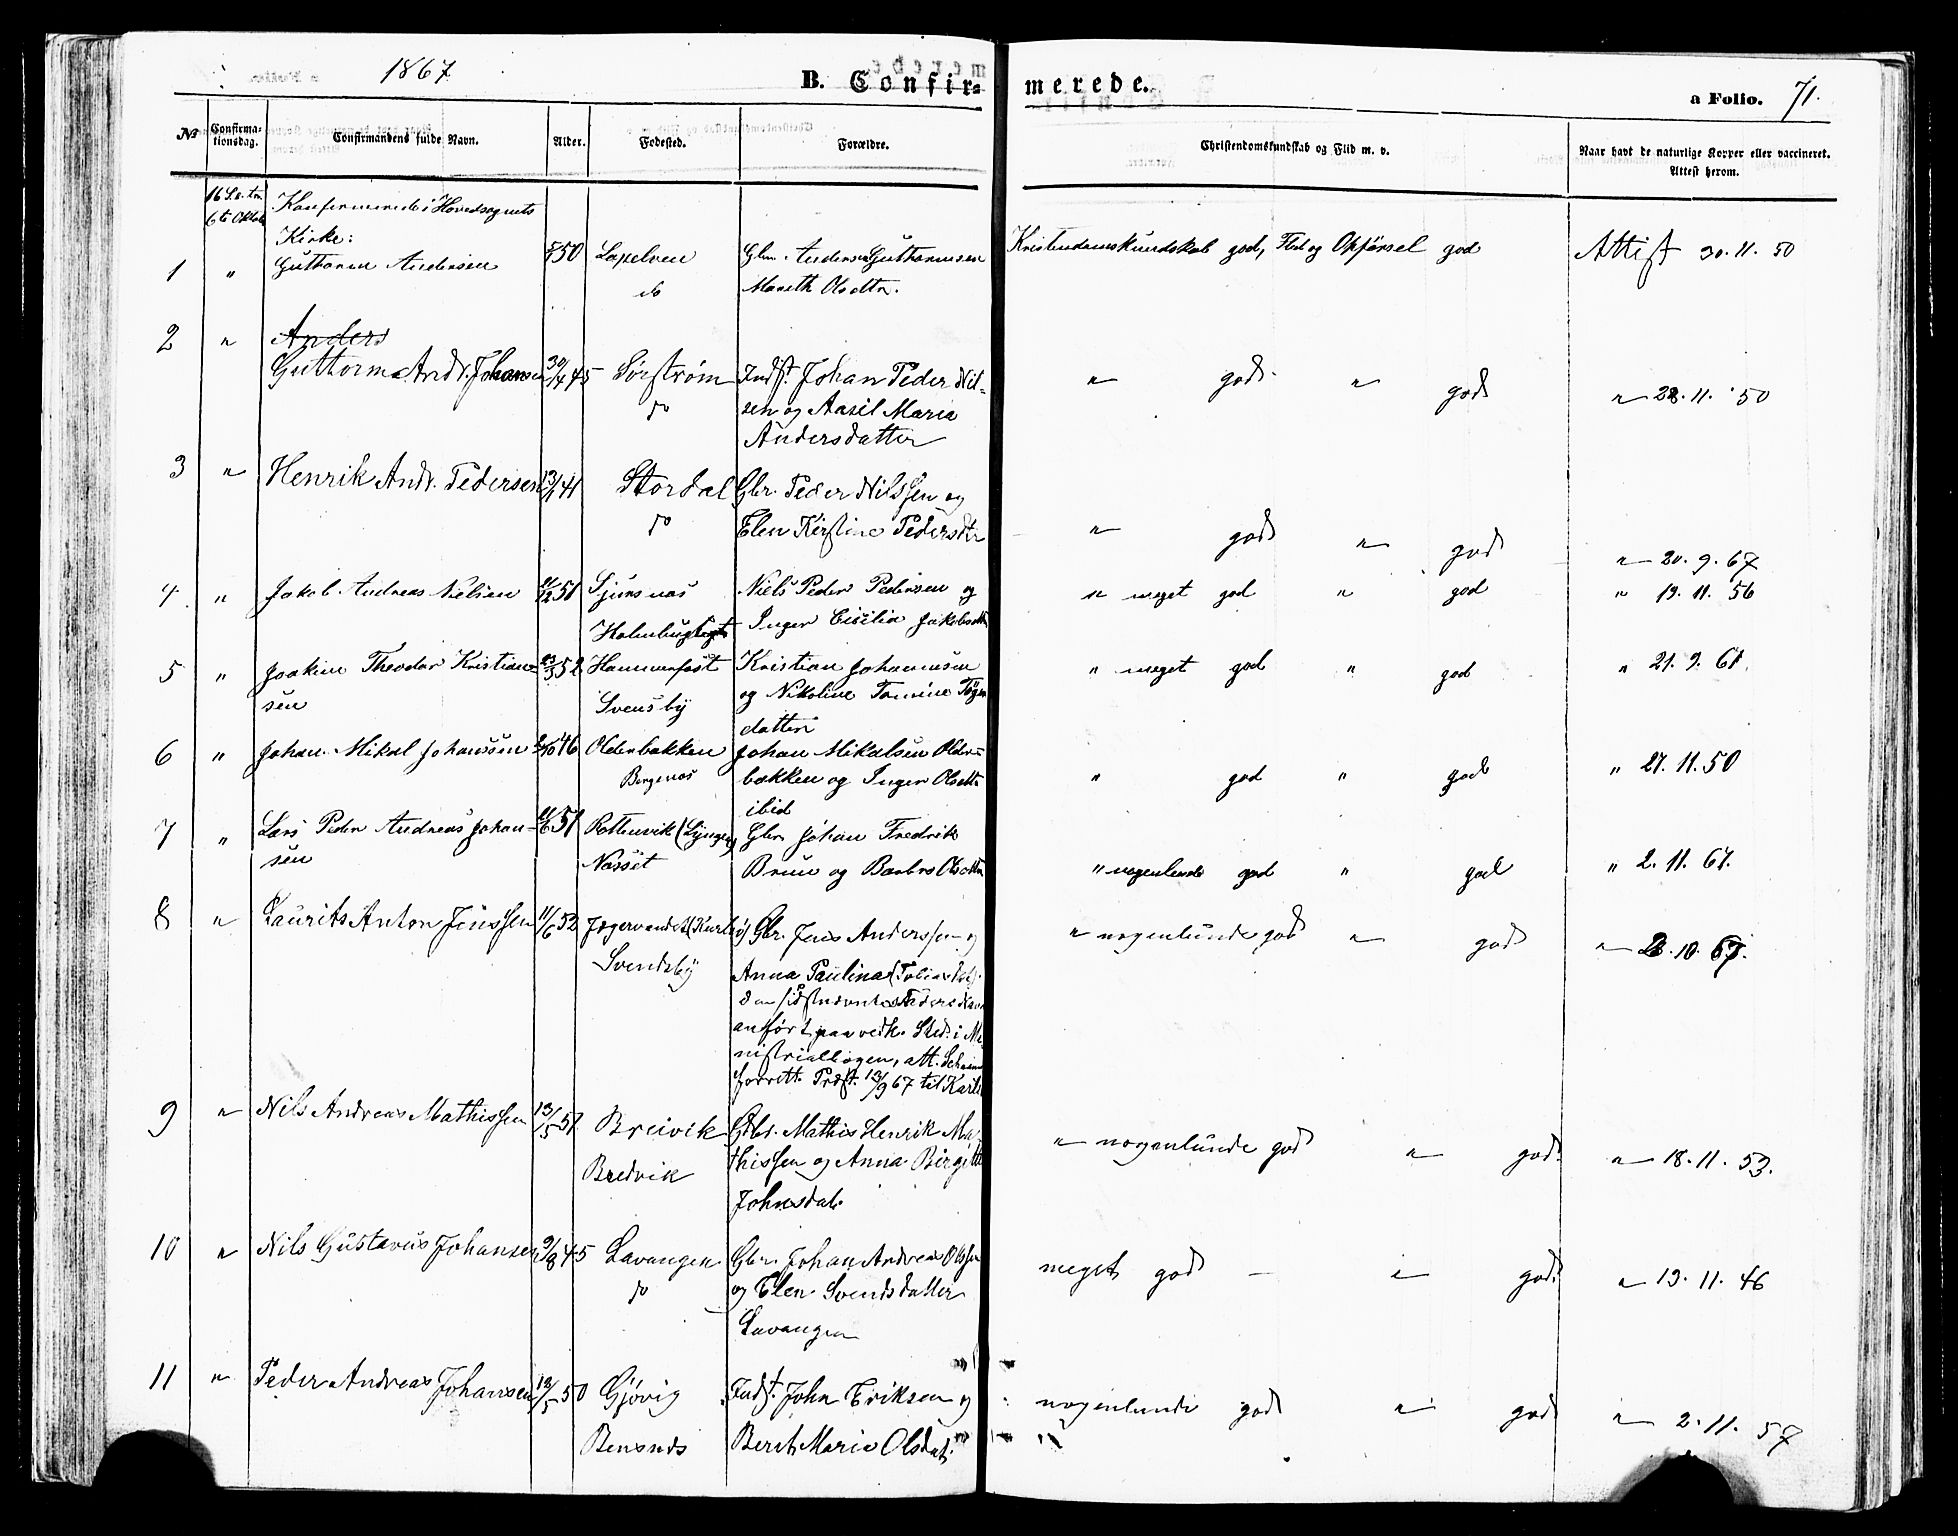 1867
B. Confirmerede.
a Folio. 71.
No Confirmationsdag. Confirmandens fulde Navn. Alder. Fødested. Forældre. Christendomskundskab og Flid m. v. Naar havt de naturlige Kopper eller vaccineret. Attest herom.
16 S. e. Tr. Konfirmerede i Hovedsognets
6te Oktob Kirke:
1 " Guttorm Andersen 50 Laxelven Gbr. Anders Guttormsen Kristendomskundskab god, Flid og Opførsel god Attest 30.11.50
do Mareth Olsdtr.
2 " Anders
Guttorm Andr. Johansen 30/4 45 Sørstrøm Indst. Johan Peder Nil- " god " god " 28.11.50
do sen og Aasil Maria
Andersdatter
3 " Henrik Andr. Pedersen 13/1 41 Stordal Gbr. Peder Nilssen og
do Elen Kirstine Pedersdtr " god " god " 20.9.67
4 " Jakob Andreas Nielsen 51 Sjursnæs Niels Peder Pedersen og " meget god " god " 19.11.56
Holmbugt Inger Cicilia Jakobsdtr
5 " Joakim Theodor Kristian- 52 Hammerfest Kristian Johannesen " meget god " god " 21.9.67.
sen Svensby og Nikoline Tomine
datter
6 " Johan Mikal Johanssen 46 Olderbakken Johan Mikalsen Older- " god " god " 27.11.50
Bergenes bakken og Inger Olsdtr
ibid
7 " Lars Peder Andreas Johan- 11/6 51 Rottenvik (Lyngen) Gbr. Johan Fredrik
sen Næsset Bruun og Barbro Olsdtr " nogenlunde god " god " 2.11.67.
8 " Laurits Anton Jenssen 11/6 52 Jægervandet (Karlsø) Gbr. Jens Anderssen og " nogenlunde god " god " 10.67.
Svendsby Anna Paulina (Tobiasdat.)
den sidstnævntes Faders Navn
anført paa vedk. Sted i Mi-
nistrialbogen, att.
forrett. Præst. 13/9 67 til Karlsø
9 " Nils Andreas Mathissen 13/5 51 Breivik Gbr. Mathis Henrik Ma- " nogenlunde god " god " 18.11.53.
Bredvik thissen og Anna Birgitte
Johnsdat.
10 " Nils Gustavus Johansen 9/8 45 Lavangen Gbr. Johan Andreas Olssen meget god — " god " 13.11.46
do og Elen Svendsdatter
Lavangen
11 " Peder Andreas Johansen 13/5 50 Gjøvig Indst. John Eriksen og nogenlunde god " god " 2.11.57
Bensnes Berit Maria Olsdat.